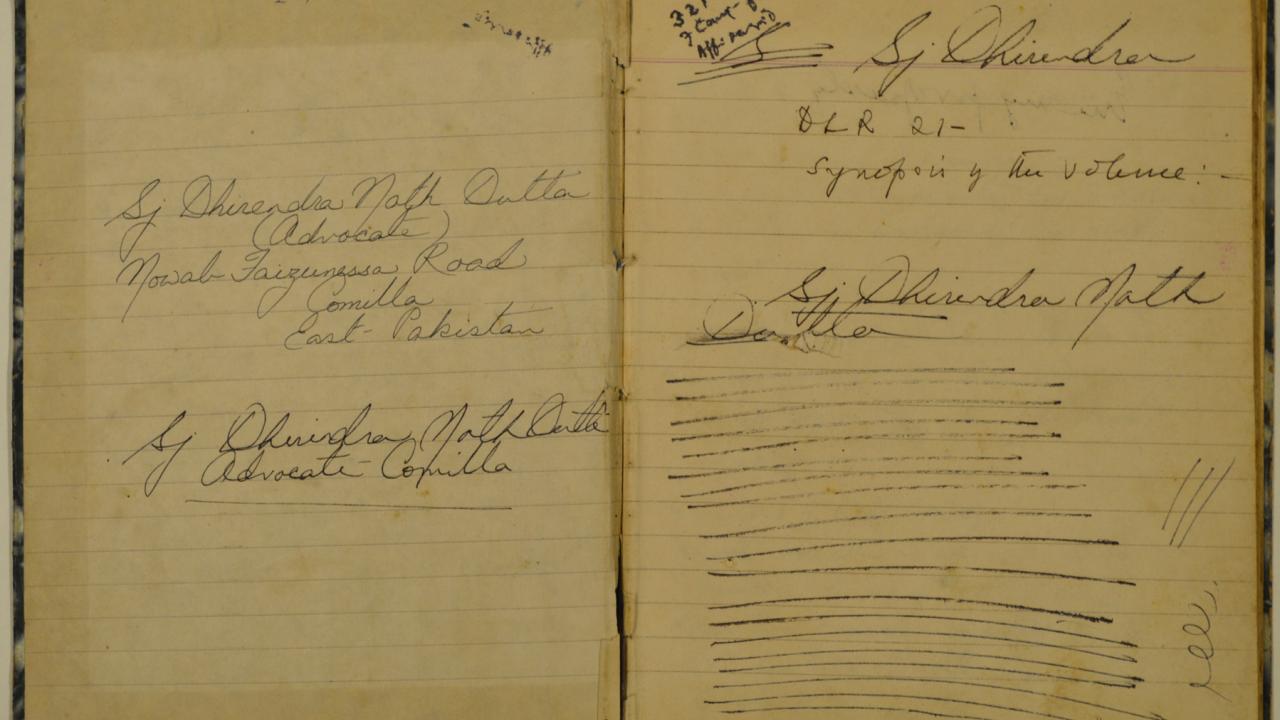 Sj Dhirendra Nath Dutta
(Advocate)
Nowab Faizunessa Road
Comilla
East-Pakistan
Sj Dhirendra Nath Dutta
Advocate-Comilla
321
Sj Dhirendra
DLR 21-
Synopsis of the volume:-
Sj. Dhirendra Nath
Dutta